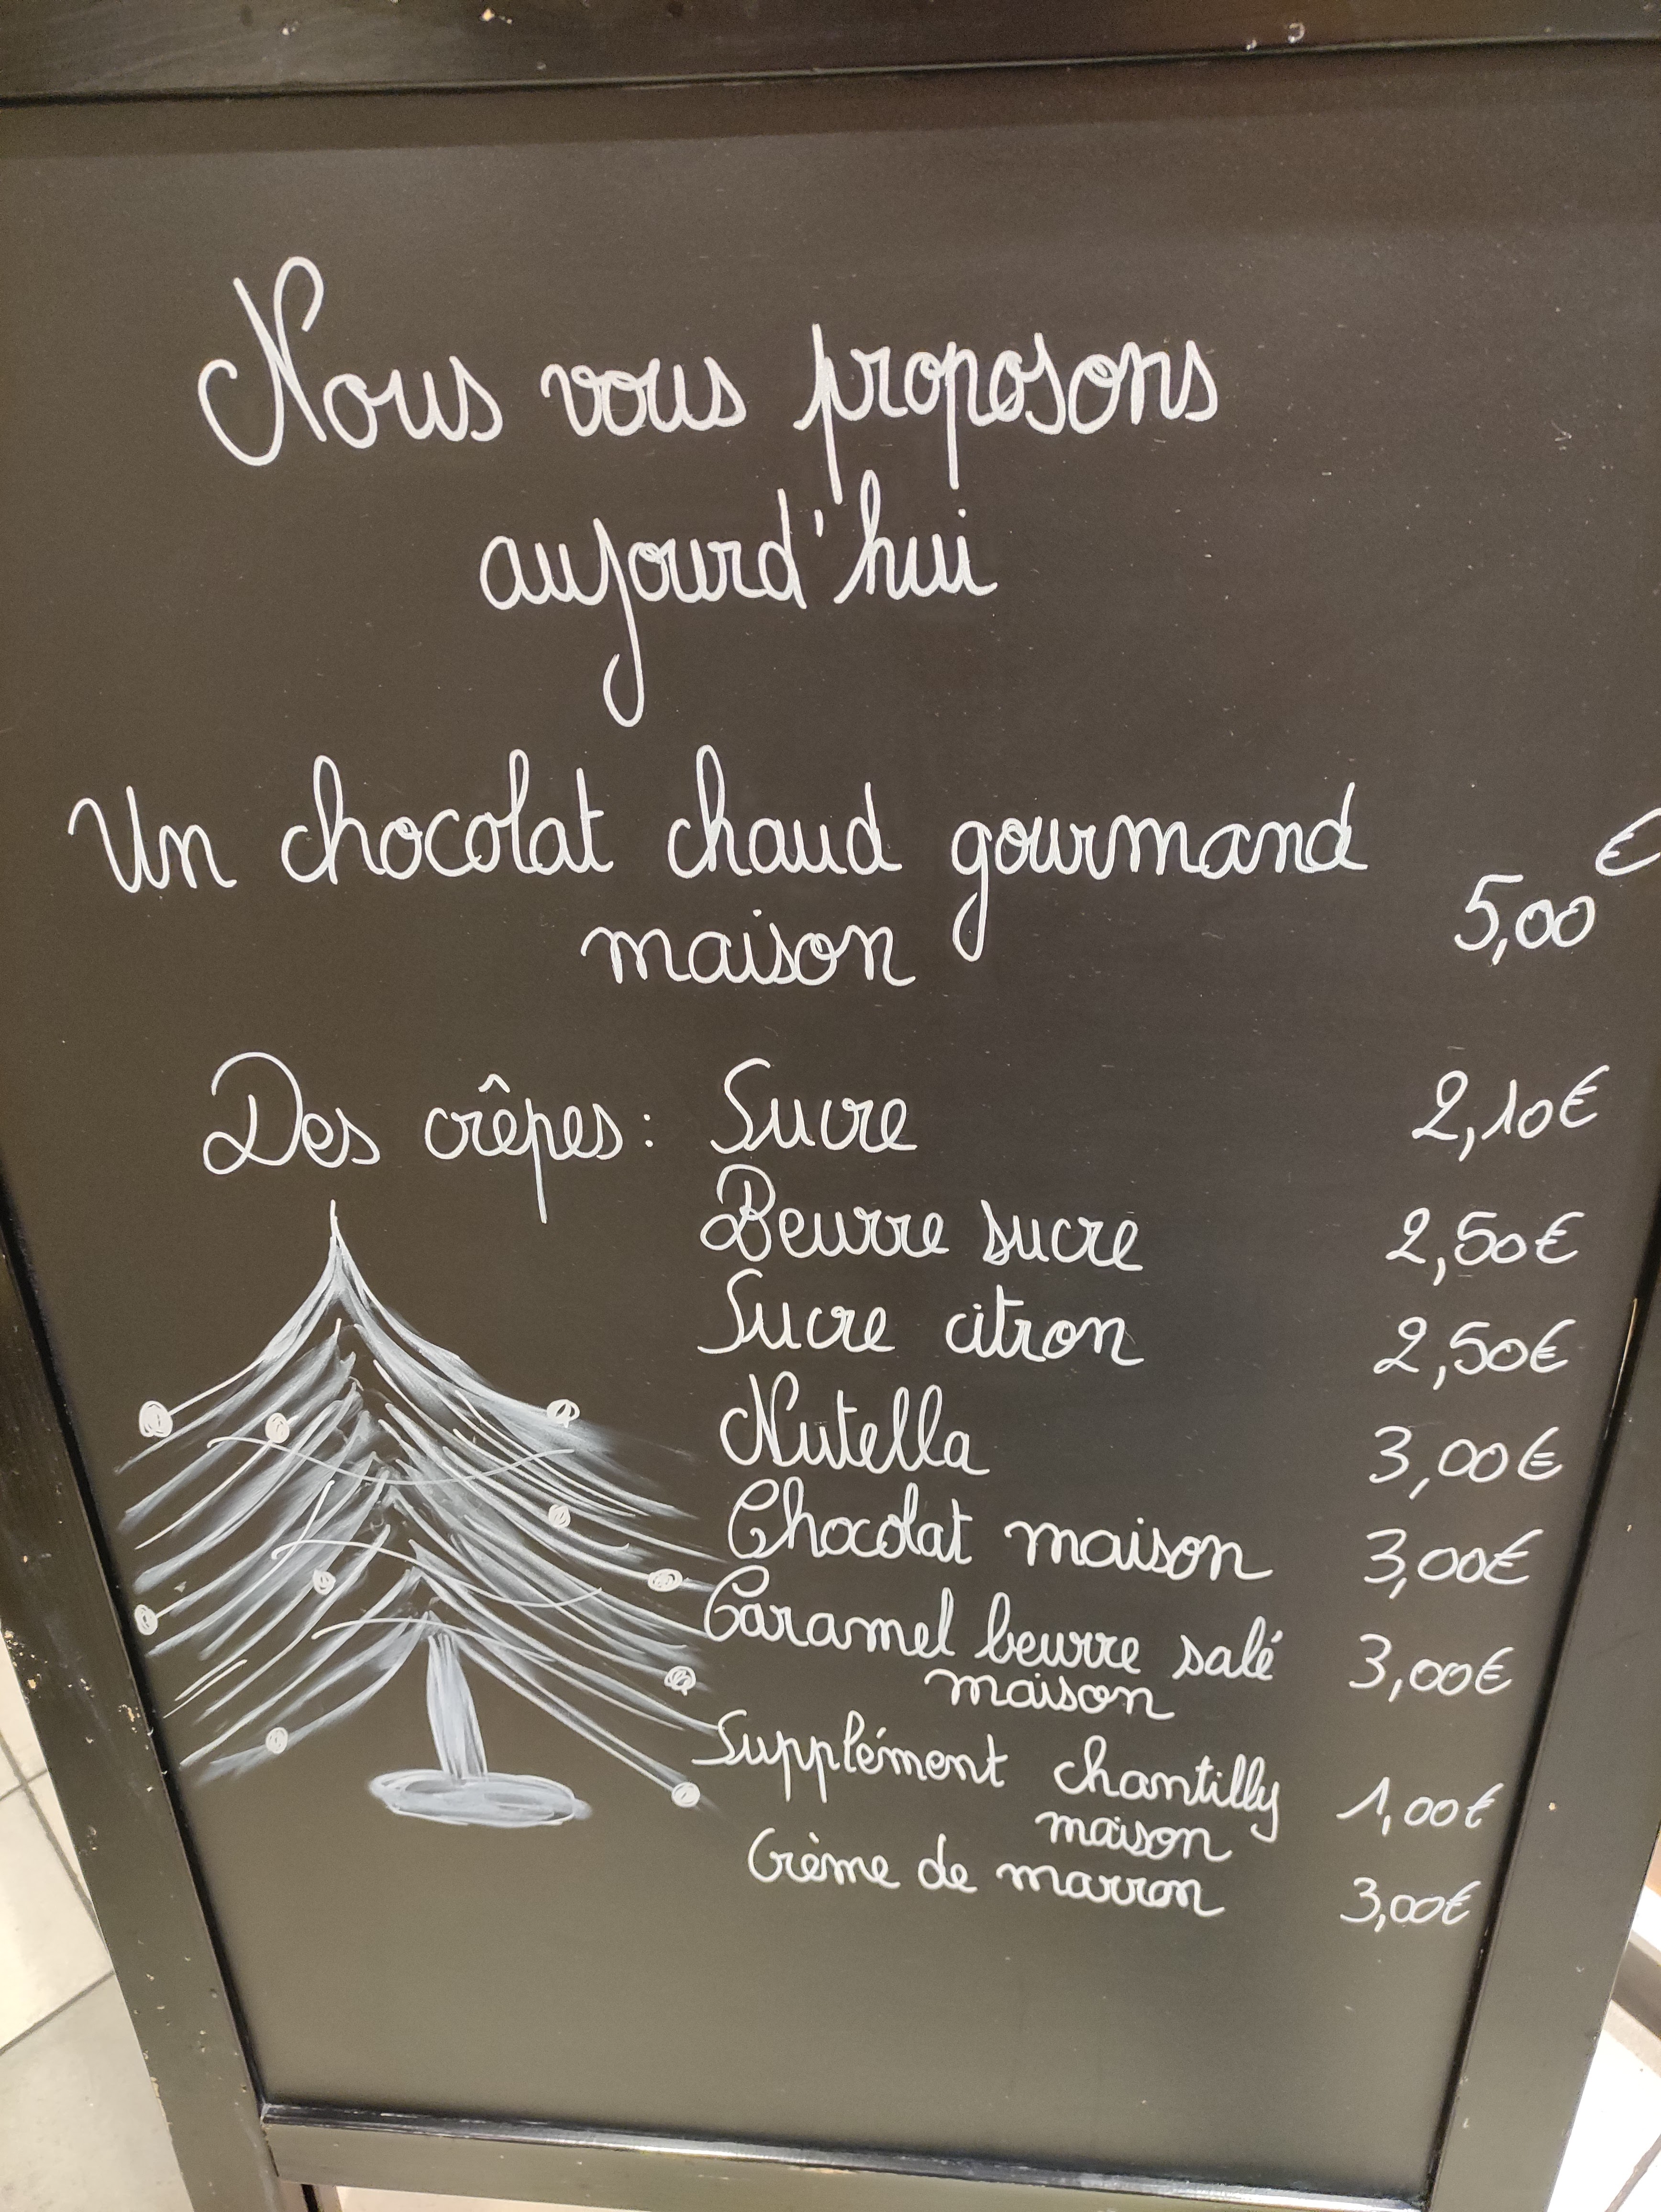 Nous vous proposons
aujourd'hui
Un chocolat chaud gourmand
maison 5,00 €
Des crêpes : Sucre 2,10€
Beurre sucre 2,50€
Sucre citron 2,50€
Nutella 3,00€
Chocolat maison 3,00€
Caramel beurre salé 3,00€
maison
Supplément chantilly 1,00€
maison
Crème de marron 3,00€